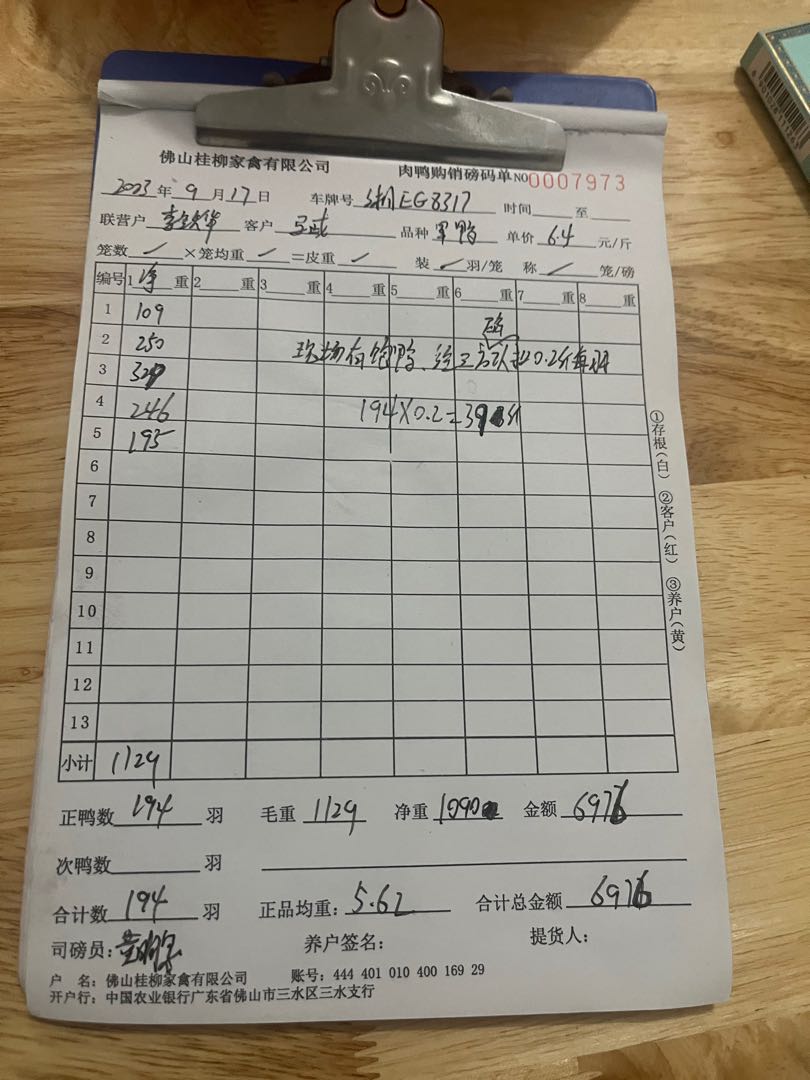 佛山桂柳家禽有限公司 肉鸭购销磅码单 NO0007973
2023年9月17日 车牌号 EG8317 时间 至
联营户 客户 品种 鸭 单价 6.4 元/斤
笼数 / ×笼均重 / =皮重 / 装 / 羽/笼 称 / 笼/磅
编号 1 净 重 2 重 3 重 4 重 5 重 6 重 7 重 8 重
1 109
2 250
现场有饱鸭、 扣0.2斤每羽
3 329
4 246 194×0.2=39斤
5 195
6
7
8
9
10
11
12
13
小计 1129
正鸭数 194 羽 毛重 1129 净重 1090 金额 6976
次鸭数 羽
合计数 194 羽 正品均重: 5.62 合计总金额 6976
司磅员: 养户签名: 提货人:
户 名: 佛山桂柳家禽有限公司 账号: 444 401 010 400 169 29
开户行: 中国农业银行广东省佛山市三水区三水支行
①存根(白) ②客户(红) ③养户(黄)